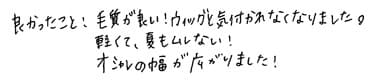 良かったこと：毛質が良い！ウィッグと気付かれなくなりました。
軽くて、夏もムレない！
オシャレの幅が広がりました！